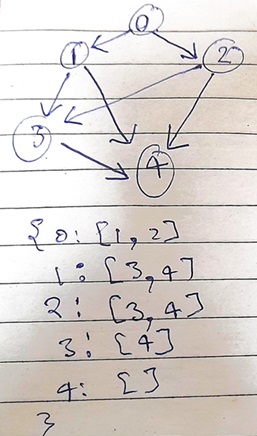 0
1 2
3
4
{ 0: [1, 2]
1: [3, 4]
2: [3, 4]
3: [4]
4: []
}